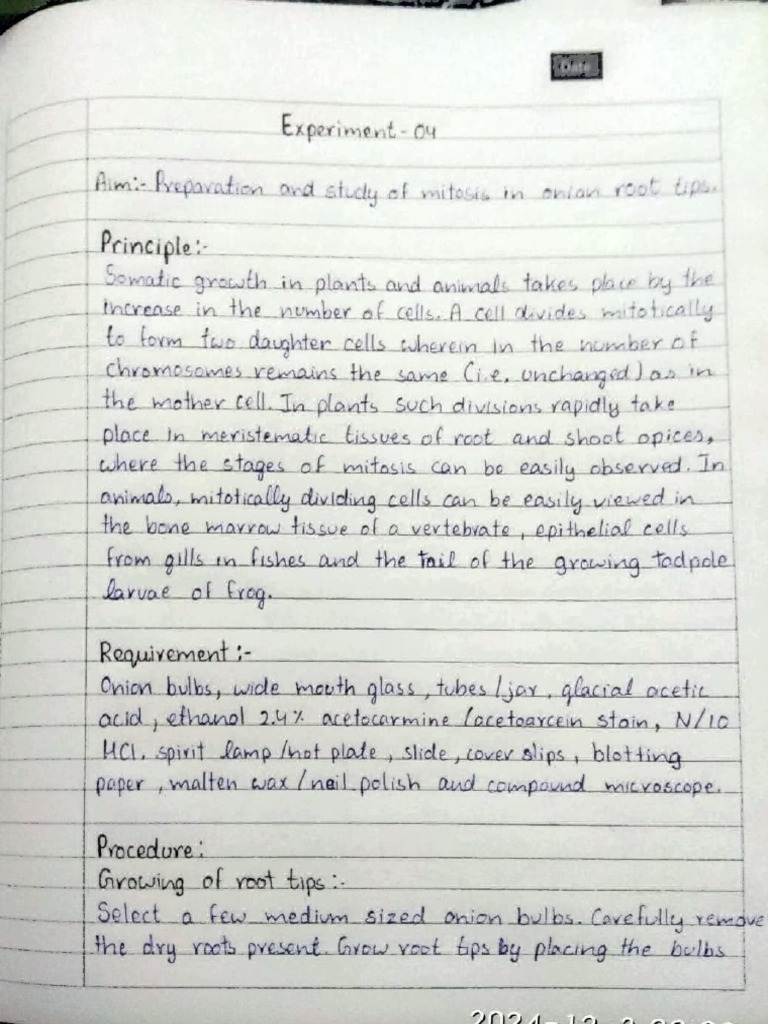 Date
Experiment-04
Aim:- Preparation and study of mitosis in onion root tips.
Principle:-
Somatic growth in plants and animals takes place by the
increase in the number of cells. A cell divides mitotically
to form two daughter cells wherein in the number of
chromosomes remains the same (i.e, unchanged) as in
the mother cell. In plants such divisions rapidly take
place in meristematic tissues of root and shoot apices,
where the stages of mitosis can be easily observed. In
animals, mitotically dividing cells can be easily viewed in
the bone marrow tissue of a vertebrate, epithelial cells
from gills in fishes and the tail of the growing tadpole
larvae of frog.
Requirement:-
Onion bulbs, wide mouth glass, tubes/jar, glacial acetic
acid, ethanol 2.4% acetocarmine/acetoarcein stain, N/10
HCl. spirit lamp/hot plate, slide, cover slips, blotting
paper, malten wax/nail polish and compound microscope.
Procedure:
Growing of root tips:-
Select a few medium sized onion bulbs. Carefully remove
the dry roots present. Grow root tips by placing the bulbs